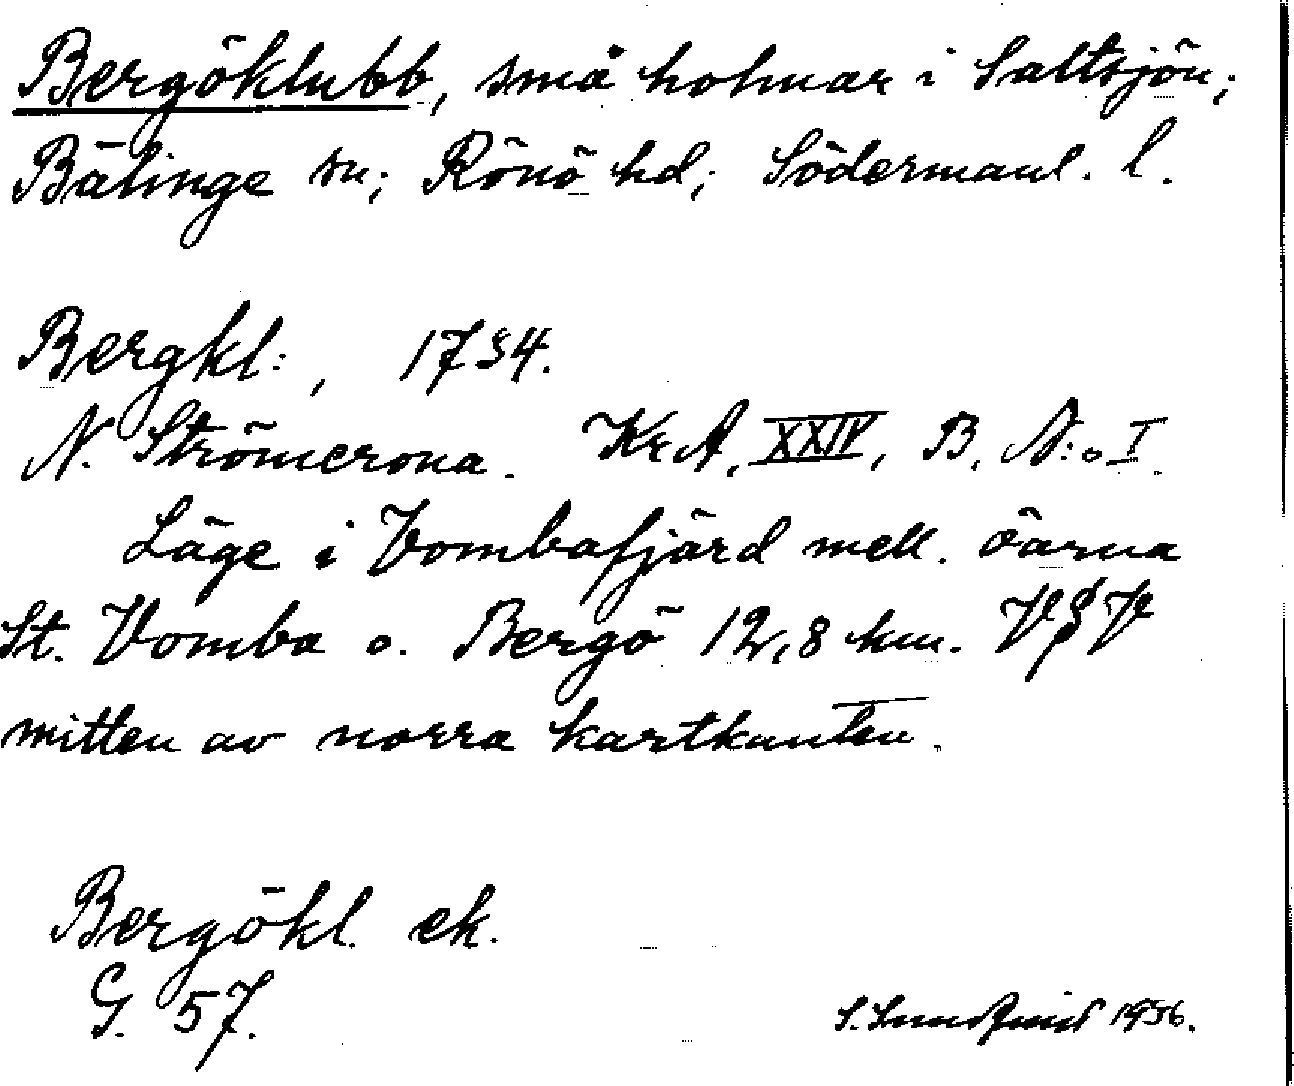 Bergöklubb, små holmar i Saltsjön;
Bälinge sn; Rönö hd; Södermanl. l.
Bergkl:, 1734.
N. Strömcrona. Kr.A, XXIV, B. N:o I.
Läge i Vombafjärd mell. öarna
St. Vomba o. Bergö 12,8 km. VgV
mitten av norra kartkanten.
Bergökl. ek.
G. 57.
S. 1936.